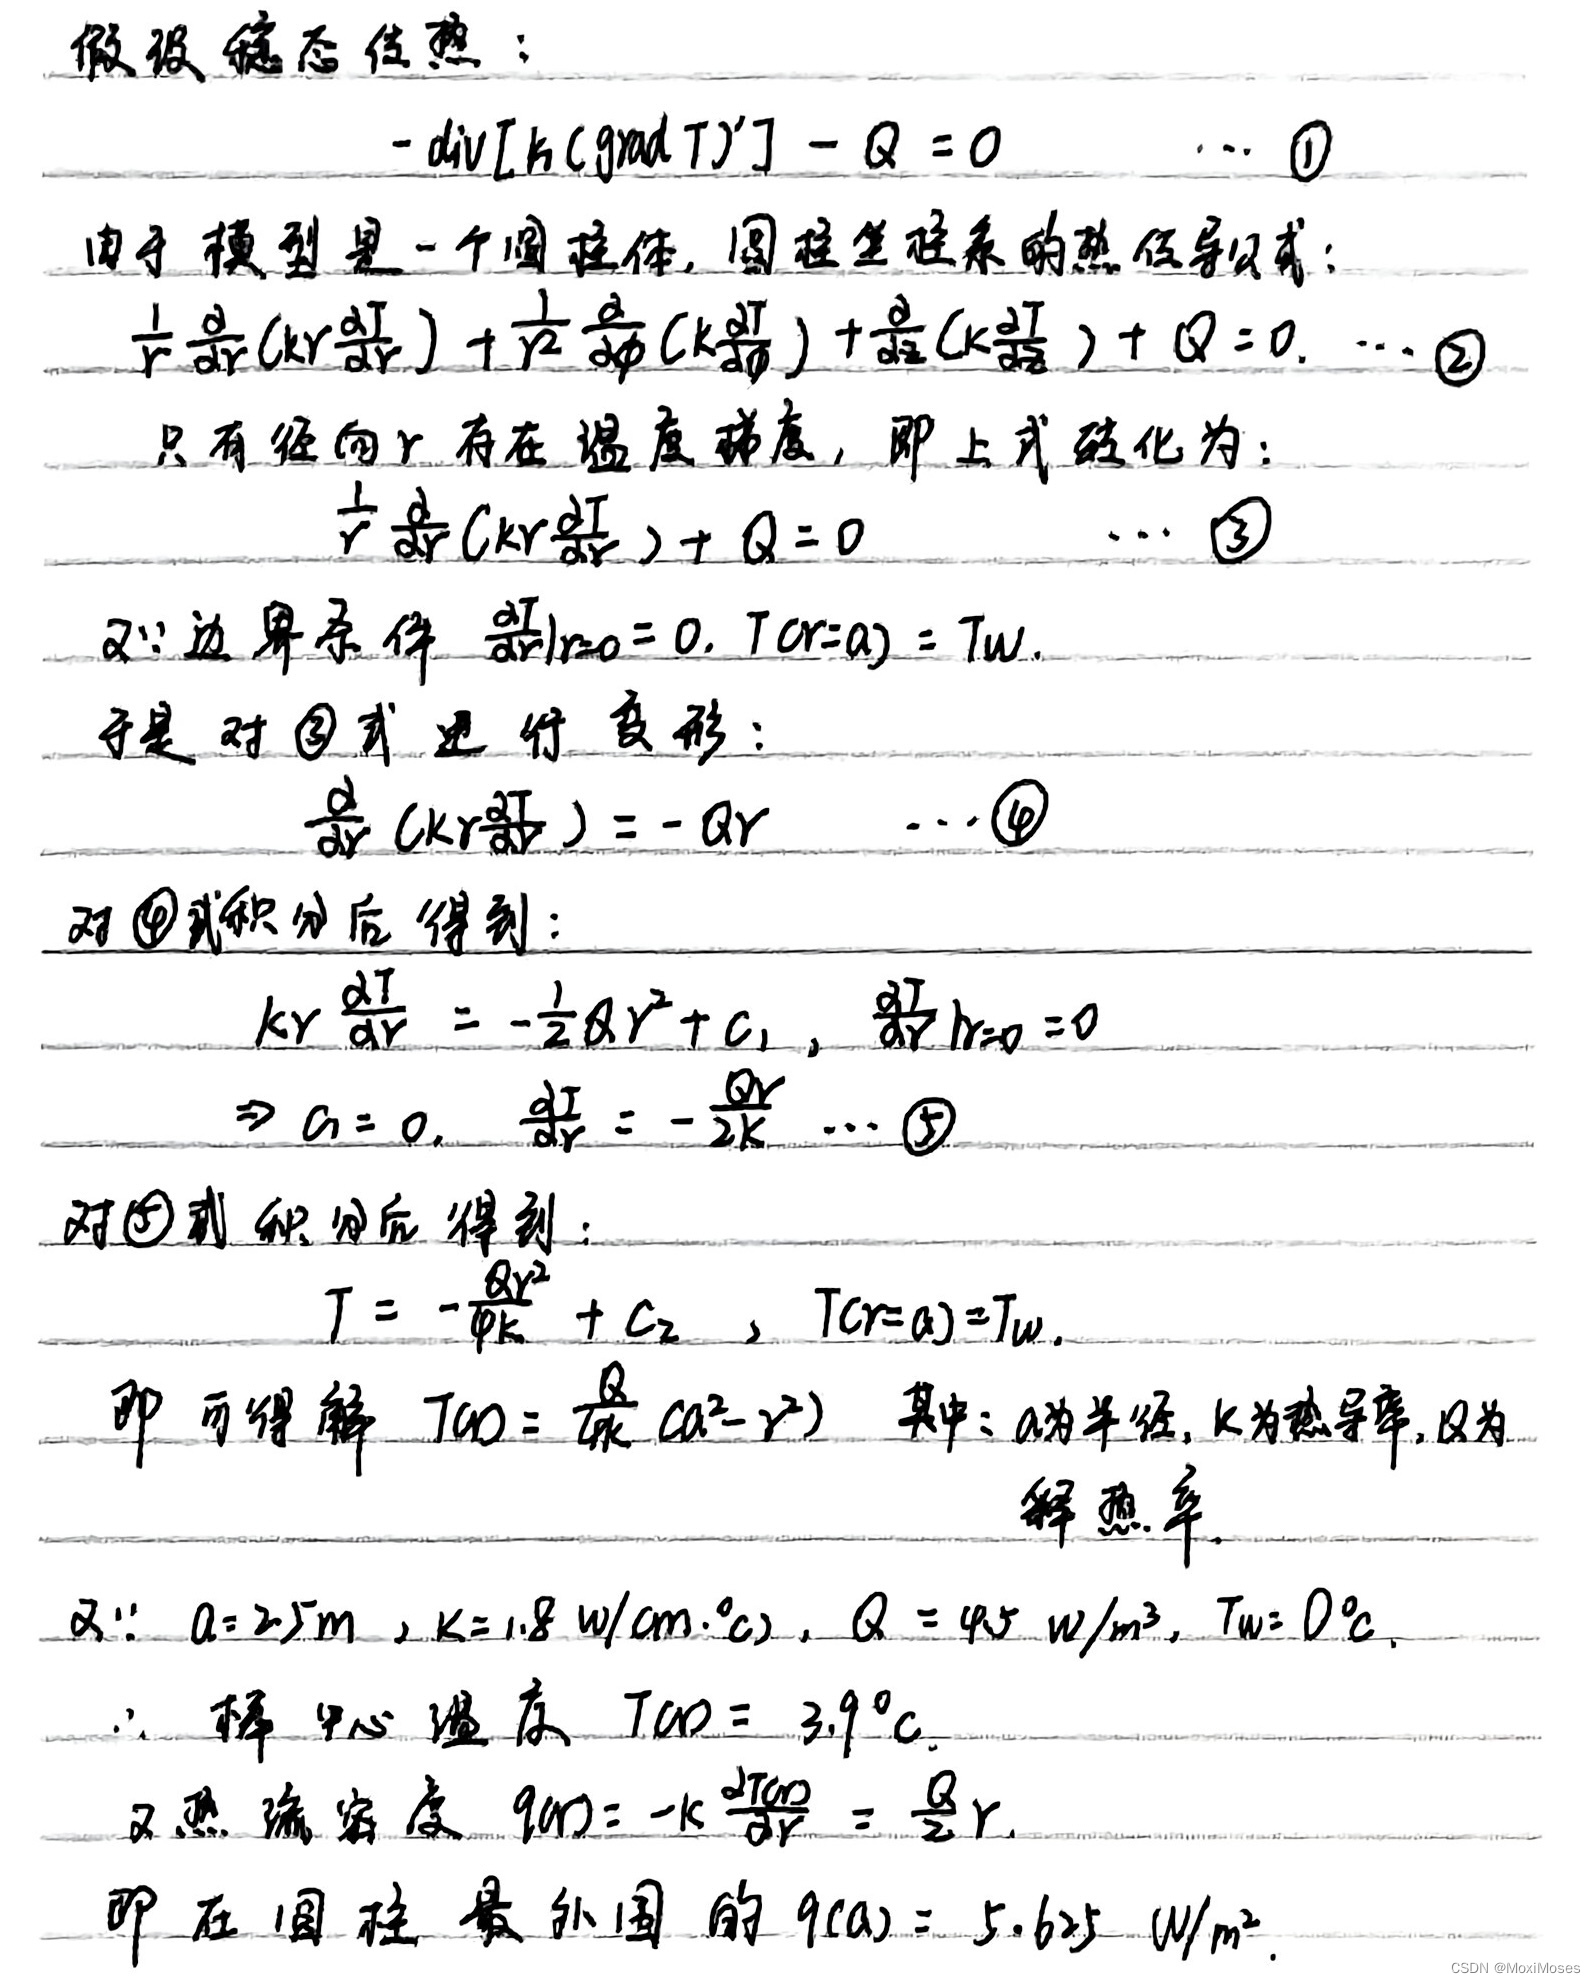 假设稳态传热：
-div[k(grad T)'] - Q = 0 ... ①
由于模型是一个圆柱体，圆柱坐标系的热传导公式：
1/r ∂/∂r(kr ∂T/∂r) + 1/r² ∂/∂φ(k ∂T/∂φ) + ∂/∂z(k ∂T/∂z) + Q = 0. ... ②
只有径向r存在温度梯度，即上式转化为：
1/r ∂/∂r(kr ∂T/∂r) + Q = 0 ... ③
又∵边界条件 ∂T/∂r|r=0 = 0. T(r=a) = Tw.
于是对③式进行变形：
∂/∂r(kr ∂T/∂r) = -Qr ... ④
对④式积分后得到：
kr ∂T/∂r = -1/2 Qr² + C₁, ∂T/∂r|r=0 = 0
⇒ C₁ = 0. ∂T/∂r = -Qr/2k ... ⑤
对⑤式积分后得到：
T = -Qr²/4k + C₂, T(r=a) = Tw.
即可得解 T(r) = Q/4k (a²-r²) 其中：a为半径, k为热导率, Q为
释热率.
又∵ a=2.5m, k=1.8 W/(m·°C), Q = 4.5 W/m³, Tw = 0°C.
∴ 棒中心温度 T(r) = 3.9°C.
又热流密度 q(r) = -k ∂T(r)/∂r = Q/2 r.
即在圆柱最外围的 q(a) = 5.625 W/m².
CSDN @MoxiMoses